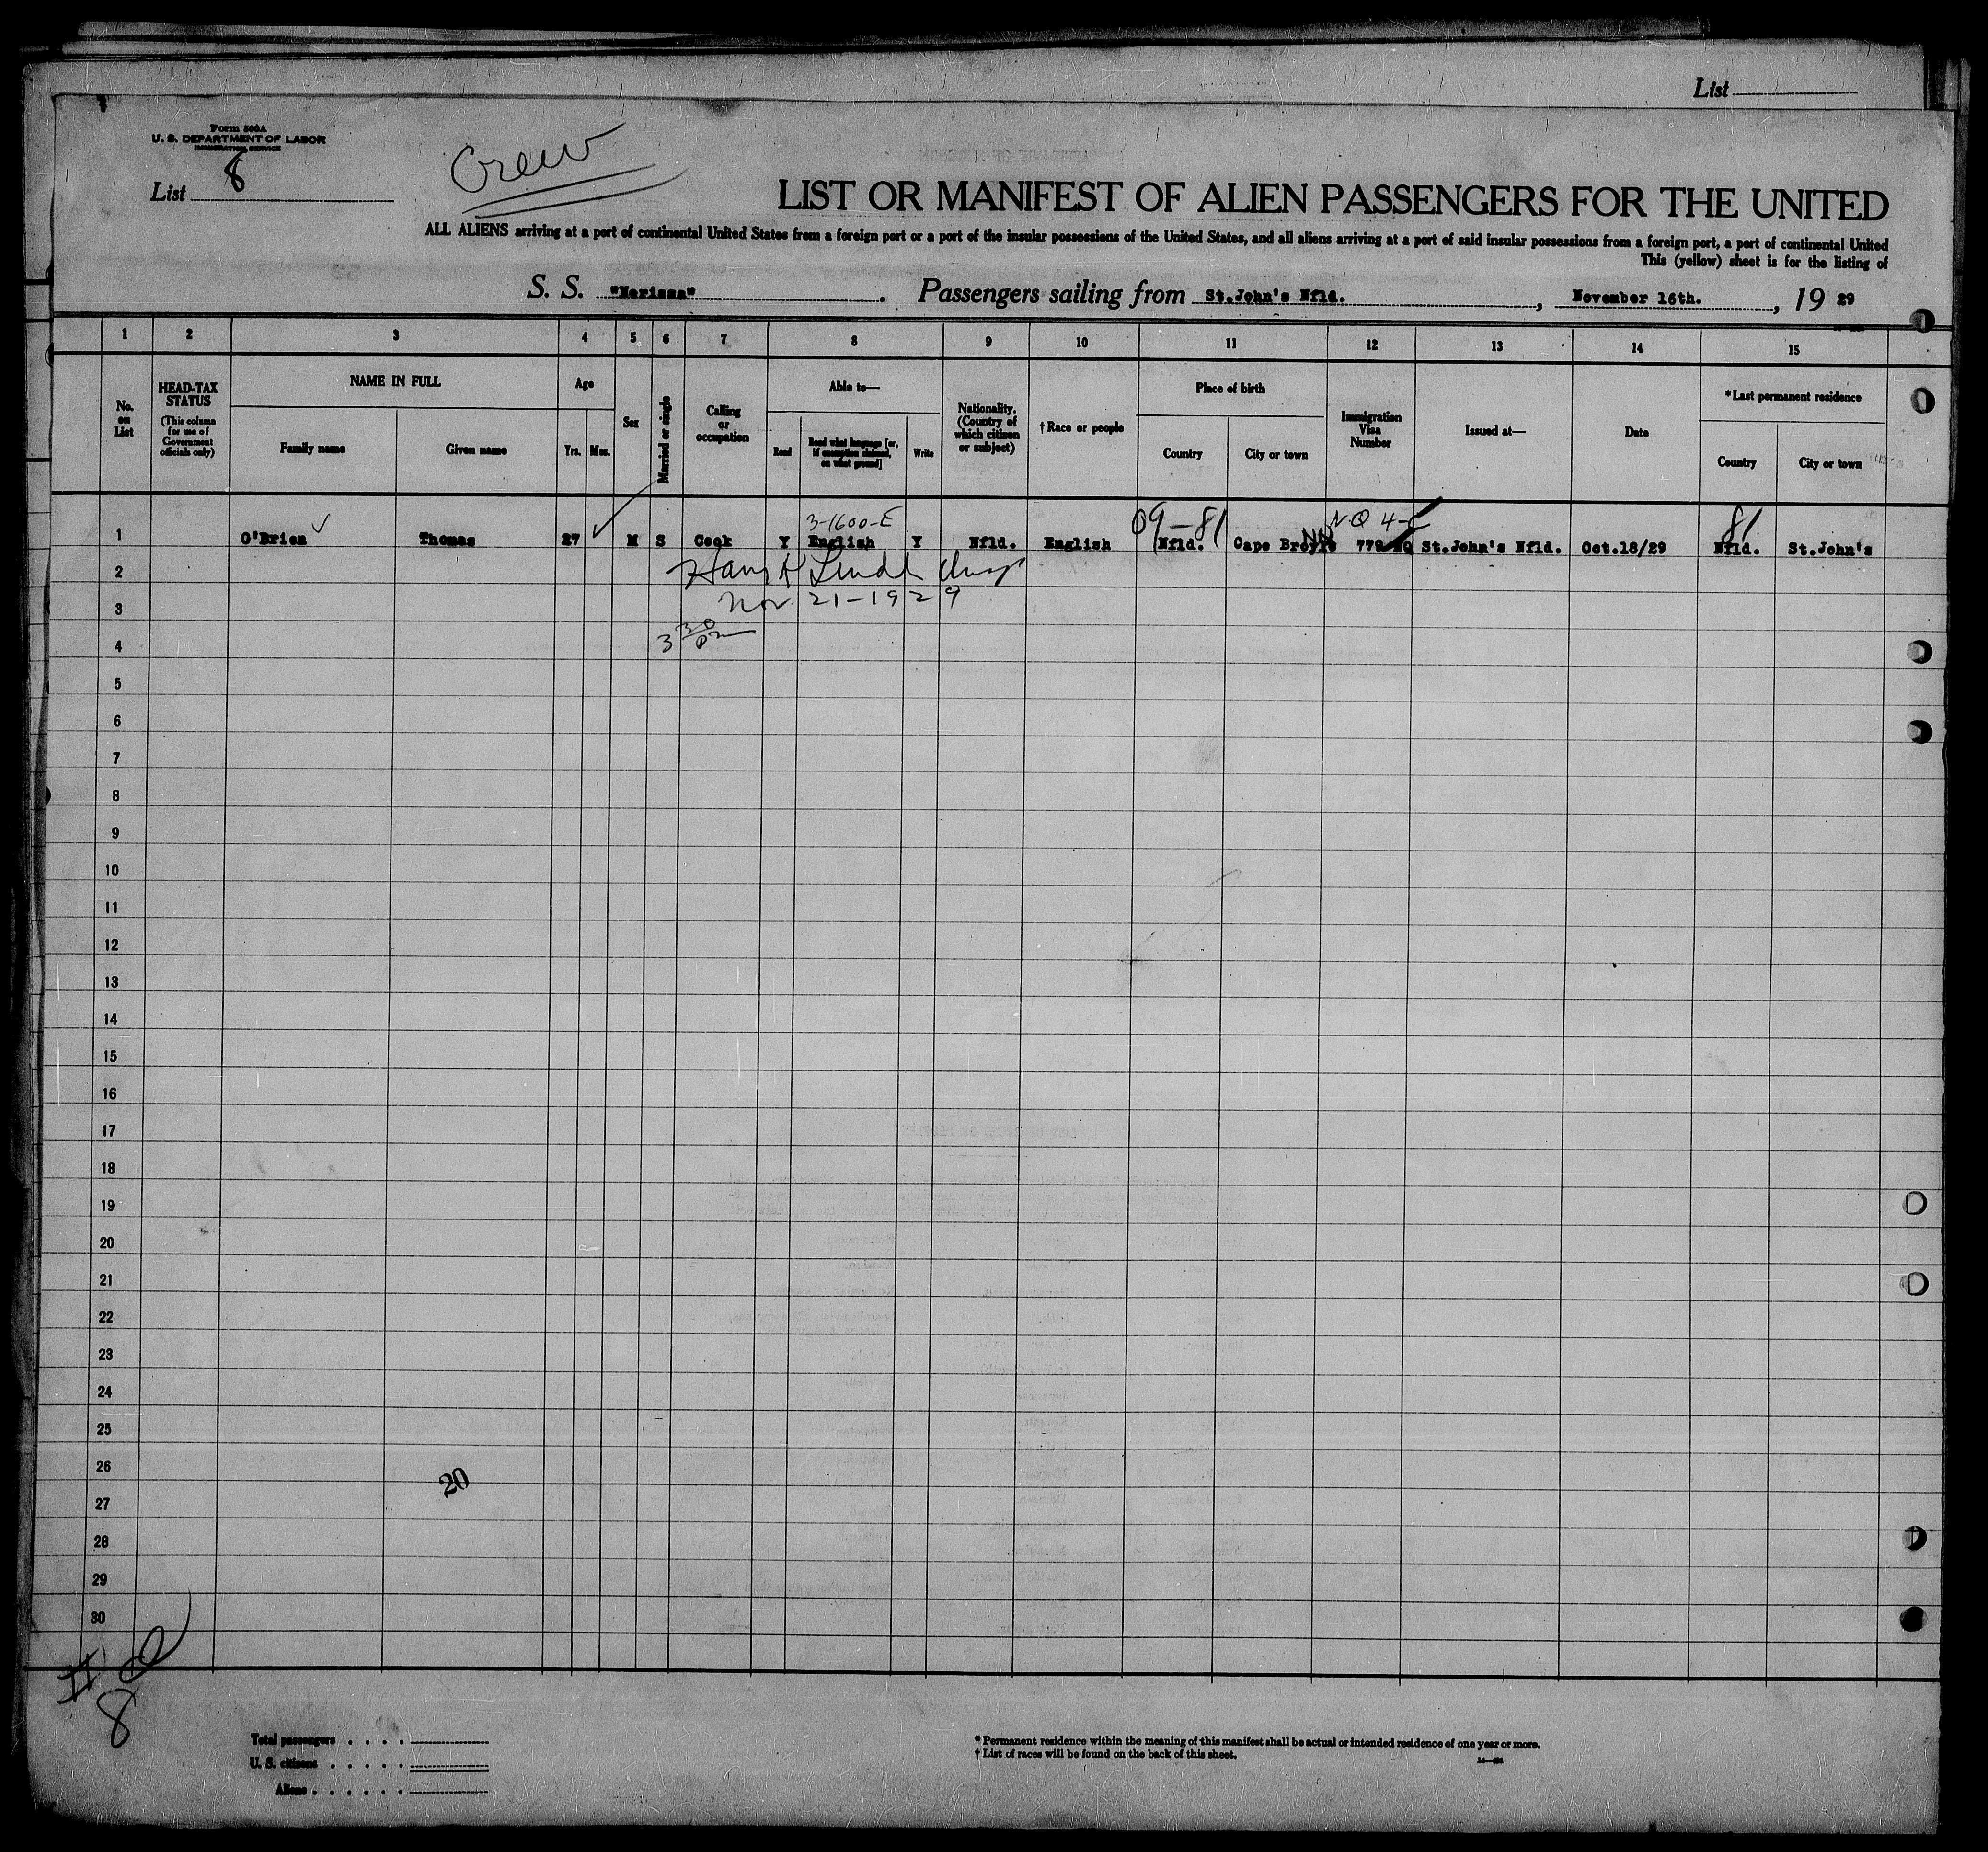 List
Form 500A
U. S. DEPARTMENT OF LABOR
IMMIGRATION SERVICE
List 8
Crew
LIST OR MANIFEST OF ALIEN PASSENGERS FOR THE UNITED
ALL ALIENS arriving at a port of continental United States from a foreign port or a port of the insular possessions of the United States, and all aliens arriving at a port of said insular possessions from a foreign port, a port of continental United
This (yellow) sheet is for the listing of
S. S. "Nerissa". Passengers sailing from St.John's Nfld., November 16th., 19 29
1 2 3 4 5 6 7 8 9 10 11 12 13 14 15
No. on List
HEAD-TAX STATUS
(This column for use of Government officials only)
NAME IN FULL
Family name
Given name
Age
Yrs.
Mos.
Sex
Married or single
Calling or occupation
Able to—
Read
Read what language [or, if exemption claimed, on what ground]
Write
Nationality. (Country of which citizen or subject)
†Race or people
Place of birth
Country
City or town
Immigration Visa Number
Issued at—
Date
*Last permanent residence
Country
City or town
3-1600-E 09-81 81
1 O'Brien ✓ Thomas 27 ✓ M S Cook Y English Y Nfld. English Nfld. Cape Broyle 779 NQ St.John's Nfld. Oct.18/29 Nfld. St.John's
2
Nov 21-1929
3
3 30 pm
4
5
6
7
8
9
10
11
12
13
14
15
16
17
18
19
20
21
22
23
24
25
26
20
27
28
29
30
8
Total passengers . . . .
U. S. citizens . . . . .
Aliens . . . . . .
* Permanent residence within the meaning of this manifest shall be actual or intended residence of one year or more.
† List of races will be found on the back of this sheet.